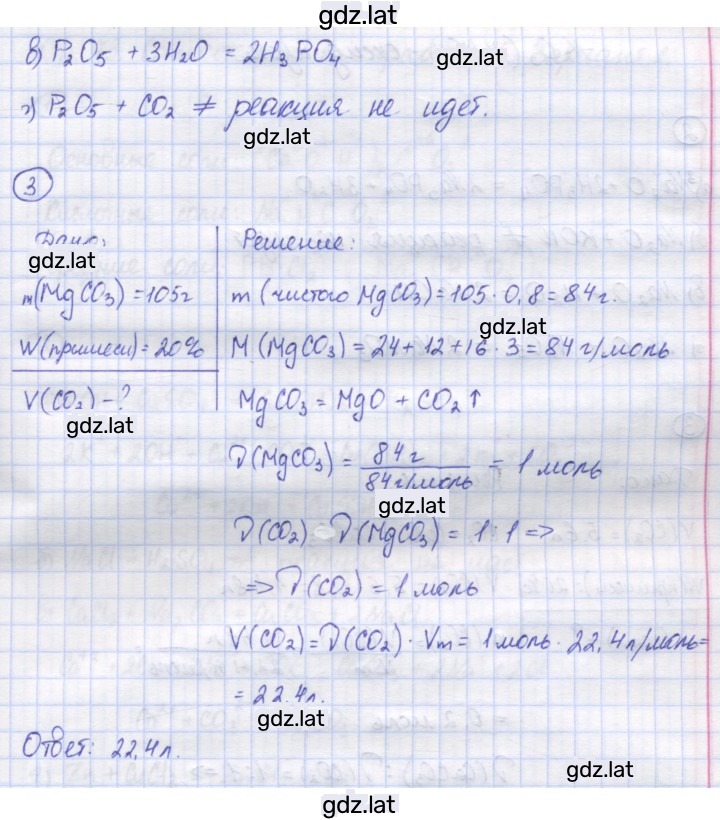 gdz.lat
в) P₂O₅ + 3H₂O = 2H₃PO₄
gdz.lat
г) P₂O₅ + CO₂ ≠ реакция не идет.
gdz.lat
3
Дано:
gdz.lat
m(MgCO₃) = 105г
W(примеси) = 20%
V(CO₂) - ?
gdz.lat
Решение:
m (чистого MgCO₃) = 105 · 0,8 = 84 г.
gdz.lat
M (MgCO₃) = 24 + 12 + 16 · 3 = 84 г/моль
MgCO₃ = MgO + CO₂ ↑
ν(MgCO₃) = 84 г / 84 г/моль = 1 моль
gdz.lat
ν(CO₂) : ν(MgCO₃) = 1 : 1 =>
=> ν(CO₂) = 1 моль
V(CO₂) = ν(CO₂) · Vm = 1 моль · 22,4 л/моль =
= 22,4 л.
gdz.lat
Ответ: 22,4 л.
gdz.lat
gdz.lat